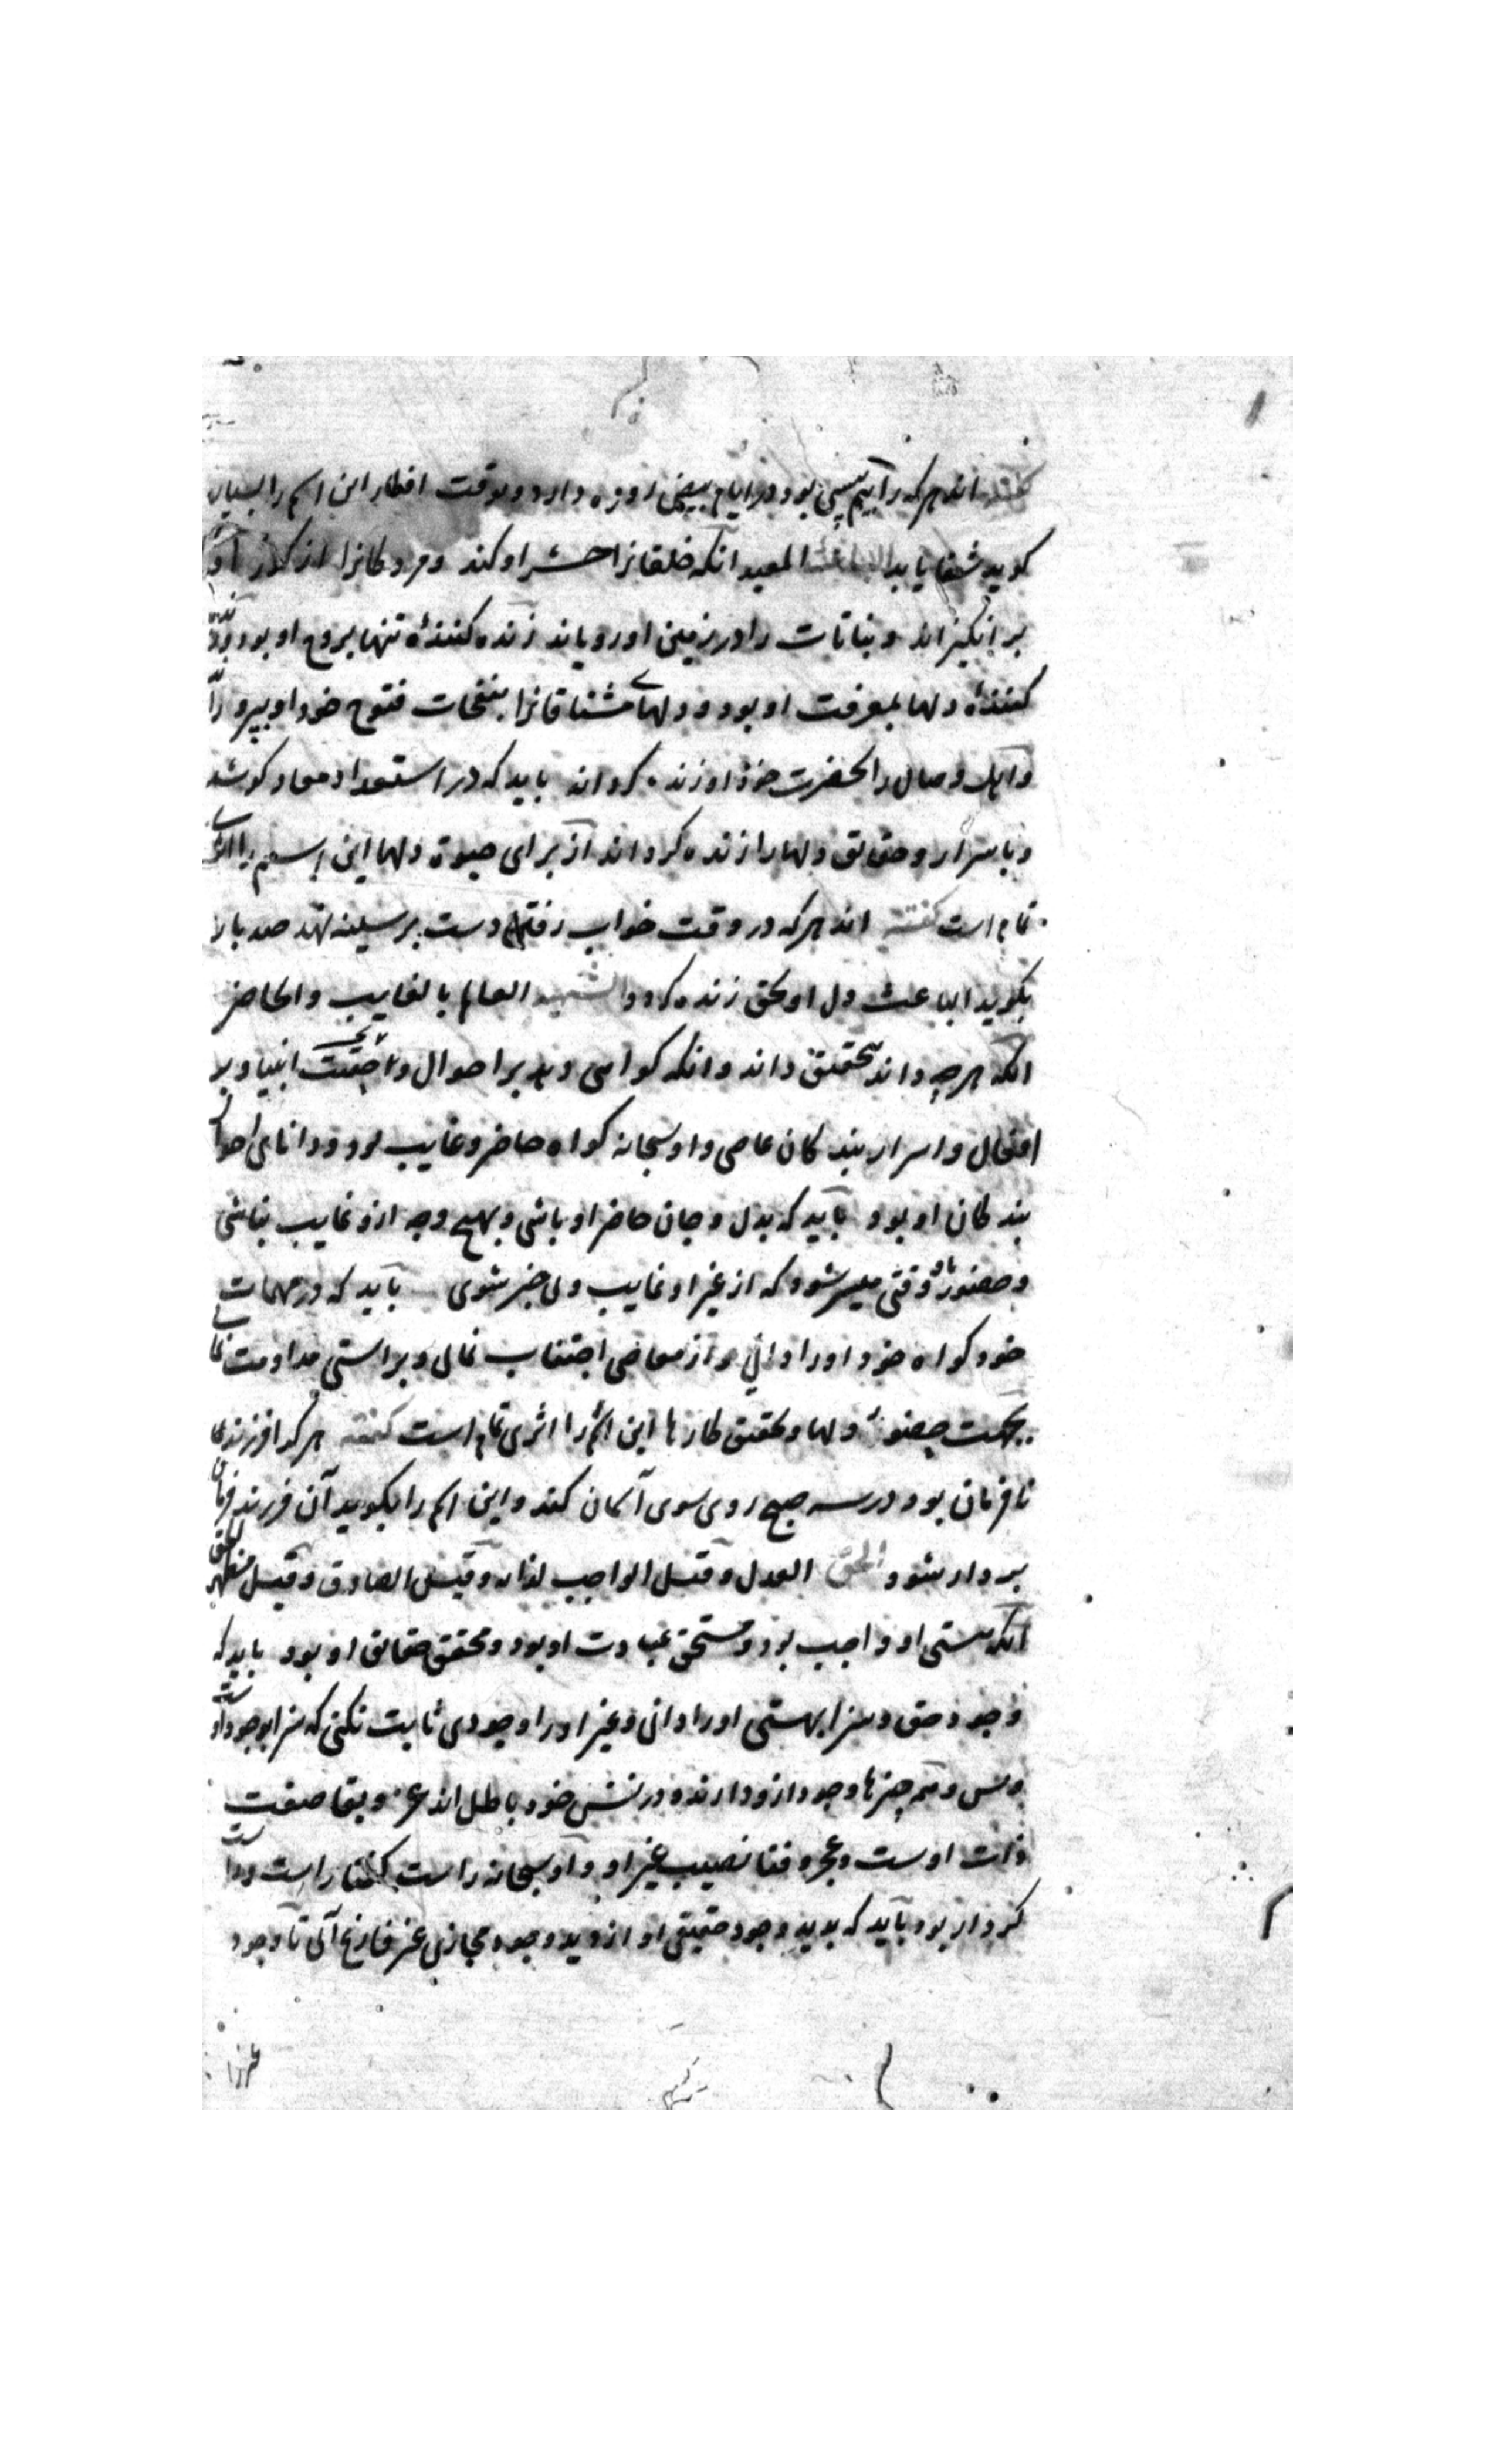 گفته اند هر که را بیم پیسی بود در ایام بیض روزه دارد و بوقت افطار این اسم را بسیار
کوید شفا یابد الباعث المعید آنکه خلقانرا حشر او کند و مردکانرا از کور او
بر انکیزاند و نباتات را در زمین او رویاند زنده کنندهٔ تنها بروح او بود و زنده
کنندهٔ دلها بمعرفت او بود و دلهای مشتاقانرا بنفحات فتوح خود او پرورد
و اهل وصال را بحضرت خود او زنده کرداند باید که در استعداد معاد کوشد
و باسرار و حقایق دلها را زنده کرداند از برای حیوة دلها این اسم را اثری
تمام است گفته اند هر که در وقت خواب رفتن دست بر سینه نهد صد بار
بکوید الباعث دل او بحق زنده کردد الشهید العالم بالغایب والحاضر
آنکه هر چه داند بتحقیق داند و آنکه کواهی دهد بر احوال انبیا و بر
افعال و اسرار بندکان عاصی و او سبحانه کواه حاضر و غایب بود و دانای احوال
بندکان او بود باید که بدل و جان حاضر او باشی و بهیچ وجه ازو غایب نباشی
و حضور با او وقتی میسر شود که از غیر او غایب و بی خبر شوی باید که در مهمات
خود کواه خود او را دانی و از معاصی اجتناب نمای و براستی مداومت نمای
بجهت حضور دلها و تحقیق کارها این اسم را اثری تمام است گفته هر که را فرزندی
نافرمان بود در سه صبح روی سوی آسمان کند و این اسم را بکوید آن فرزند فرمان
بردار شود الحق العدل و قیل الواجب لذاته و قیل الصادق و قیل مظهر الحق
آنکه هستی او واجب بود و مستحق عبادت او بود و محقق حقایق او بود باید که
وجود حق و سزا بهستی او را دانی و غیر او را وجودی ثابت نکنی که سزا بوجود اوست
و بس و همه چیزها وجود ازو دارند و در نفس خود باطل اند عز و بقا صفت
ذات اوست و عجز و فنا نصیب غیر او و او سبحانه راست گفتار راست و راست
کردار بود باید که بدید وجود حقیقی او از دید وجود مجازی غیر فارغ آئی تا وجود